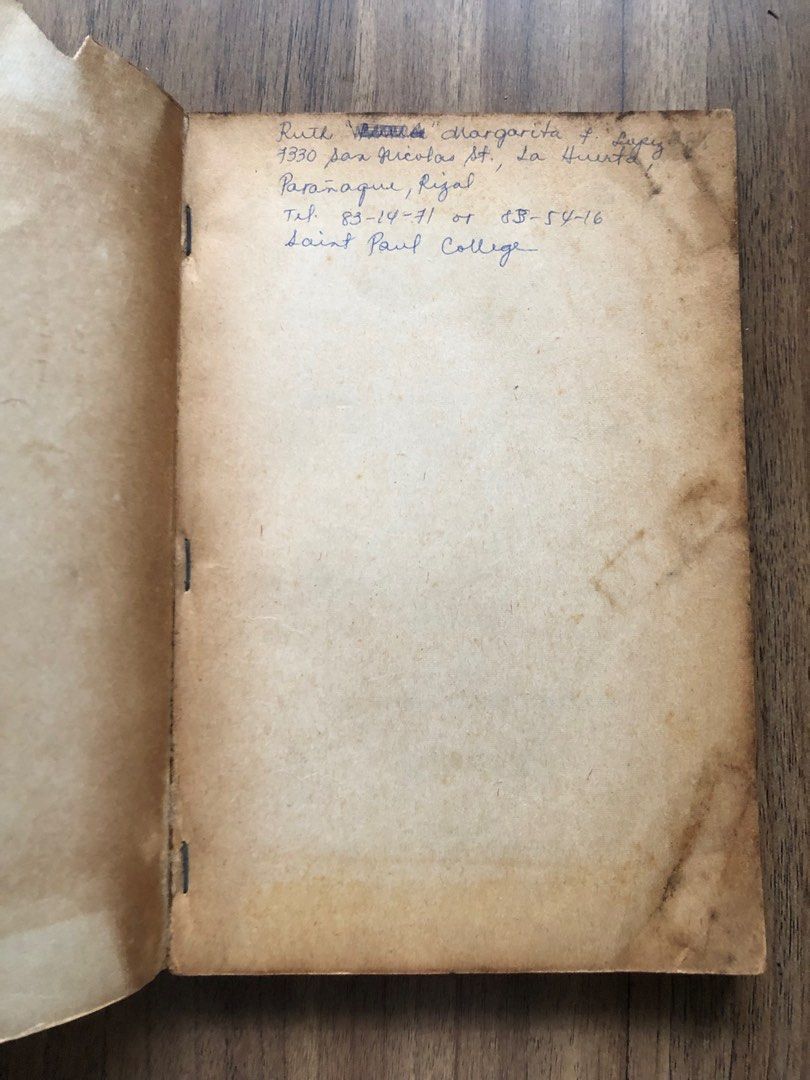 Ruth " " Margarita F. Lopez
7330 San Nicolas St., La Huerta,
Parañaque, Rizal
Tel. 83-14-71 or 83-54-16
Saint Paul College